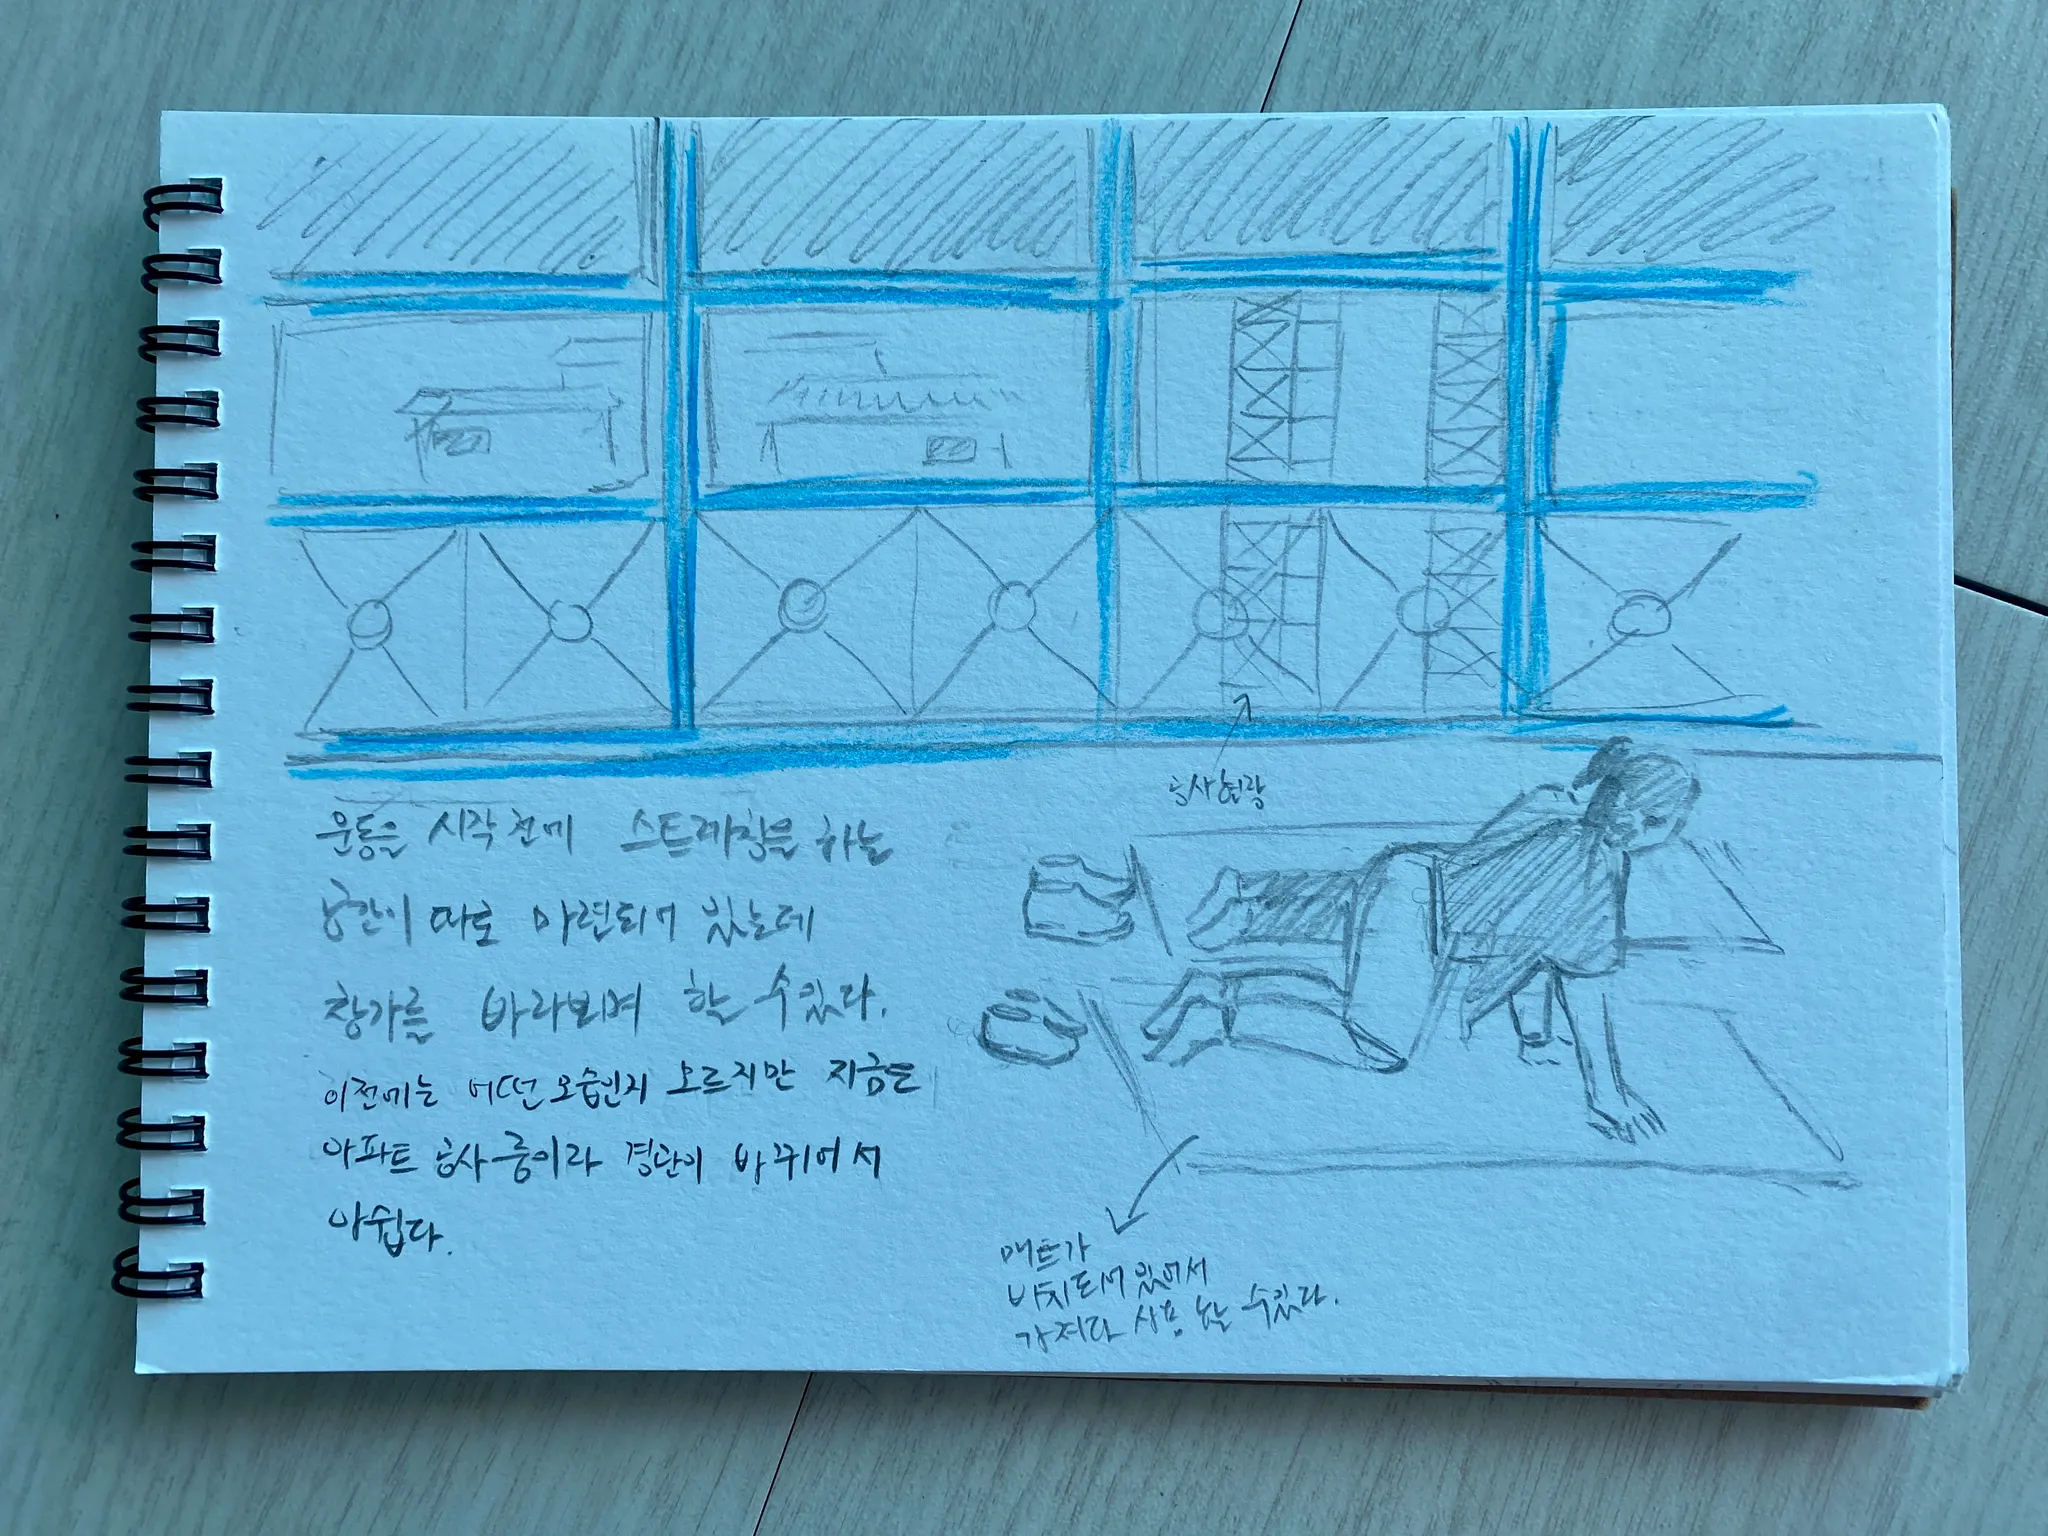 공사현장
운동을 시작 전에 스트레칭을 하는
공간이 따로 마련되어 있는데
창가를 바라보며 할 수 있다.
이전에는 어떤 모습인지 모르지만 지금은
아파트 공사 중이라 경관이 바뀌어서
아쉽다.
매트가
비치되어 있어서
가져다 사용 할 수 있다.